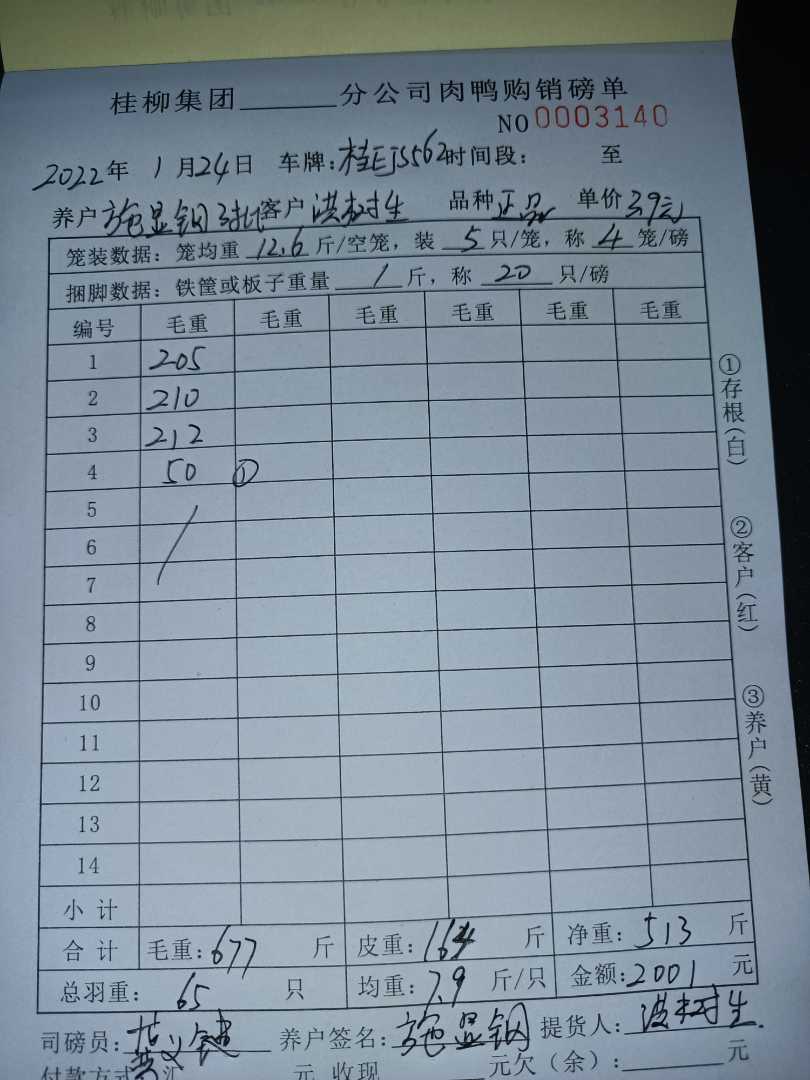 桂柳集团______分公司肉鸭购销磅单
NO 0003140
2022年 1月24日 车牌:桂EJS562 时间段: 至
养户 施显钢 客户 洪树生 品种 正品 单价 3.9元
笼装数据: 笼均重 12.6 斤/空笼, 装 5 只/笼, 称 4 笼/磅
捆脚数据: 铁筐或板子重量 1 斤, 称 20 只/磅
编号 毛重 毛重 毛重 毛重 毛重 毛重
1 205
2 210
3 212
4 50 ①
5
6
7
8
9
10
11
12
13
14
小 计
合 计 毛重: 677 斤 皮重: 164 斤 净重: 513 斤
总羽重: 65 只 均重: 7.9 斤/只 金额: 2001 元
司磅员: 养户签名: 施显钢 提货人: 洪树生
付款方式 汇 元 收现 元欠(余): 元
①存根(白)
②客户(红)
③养户(黄)